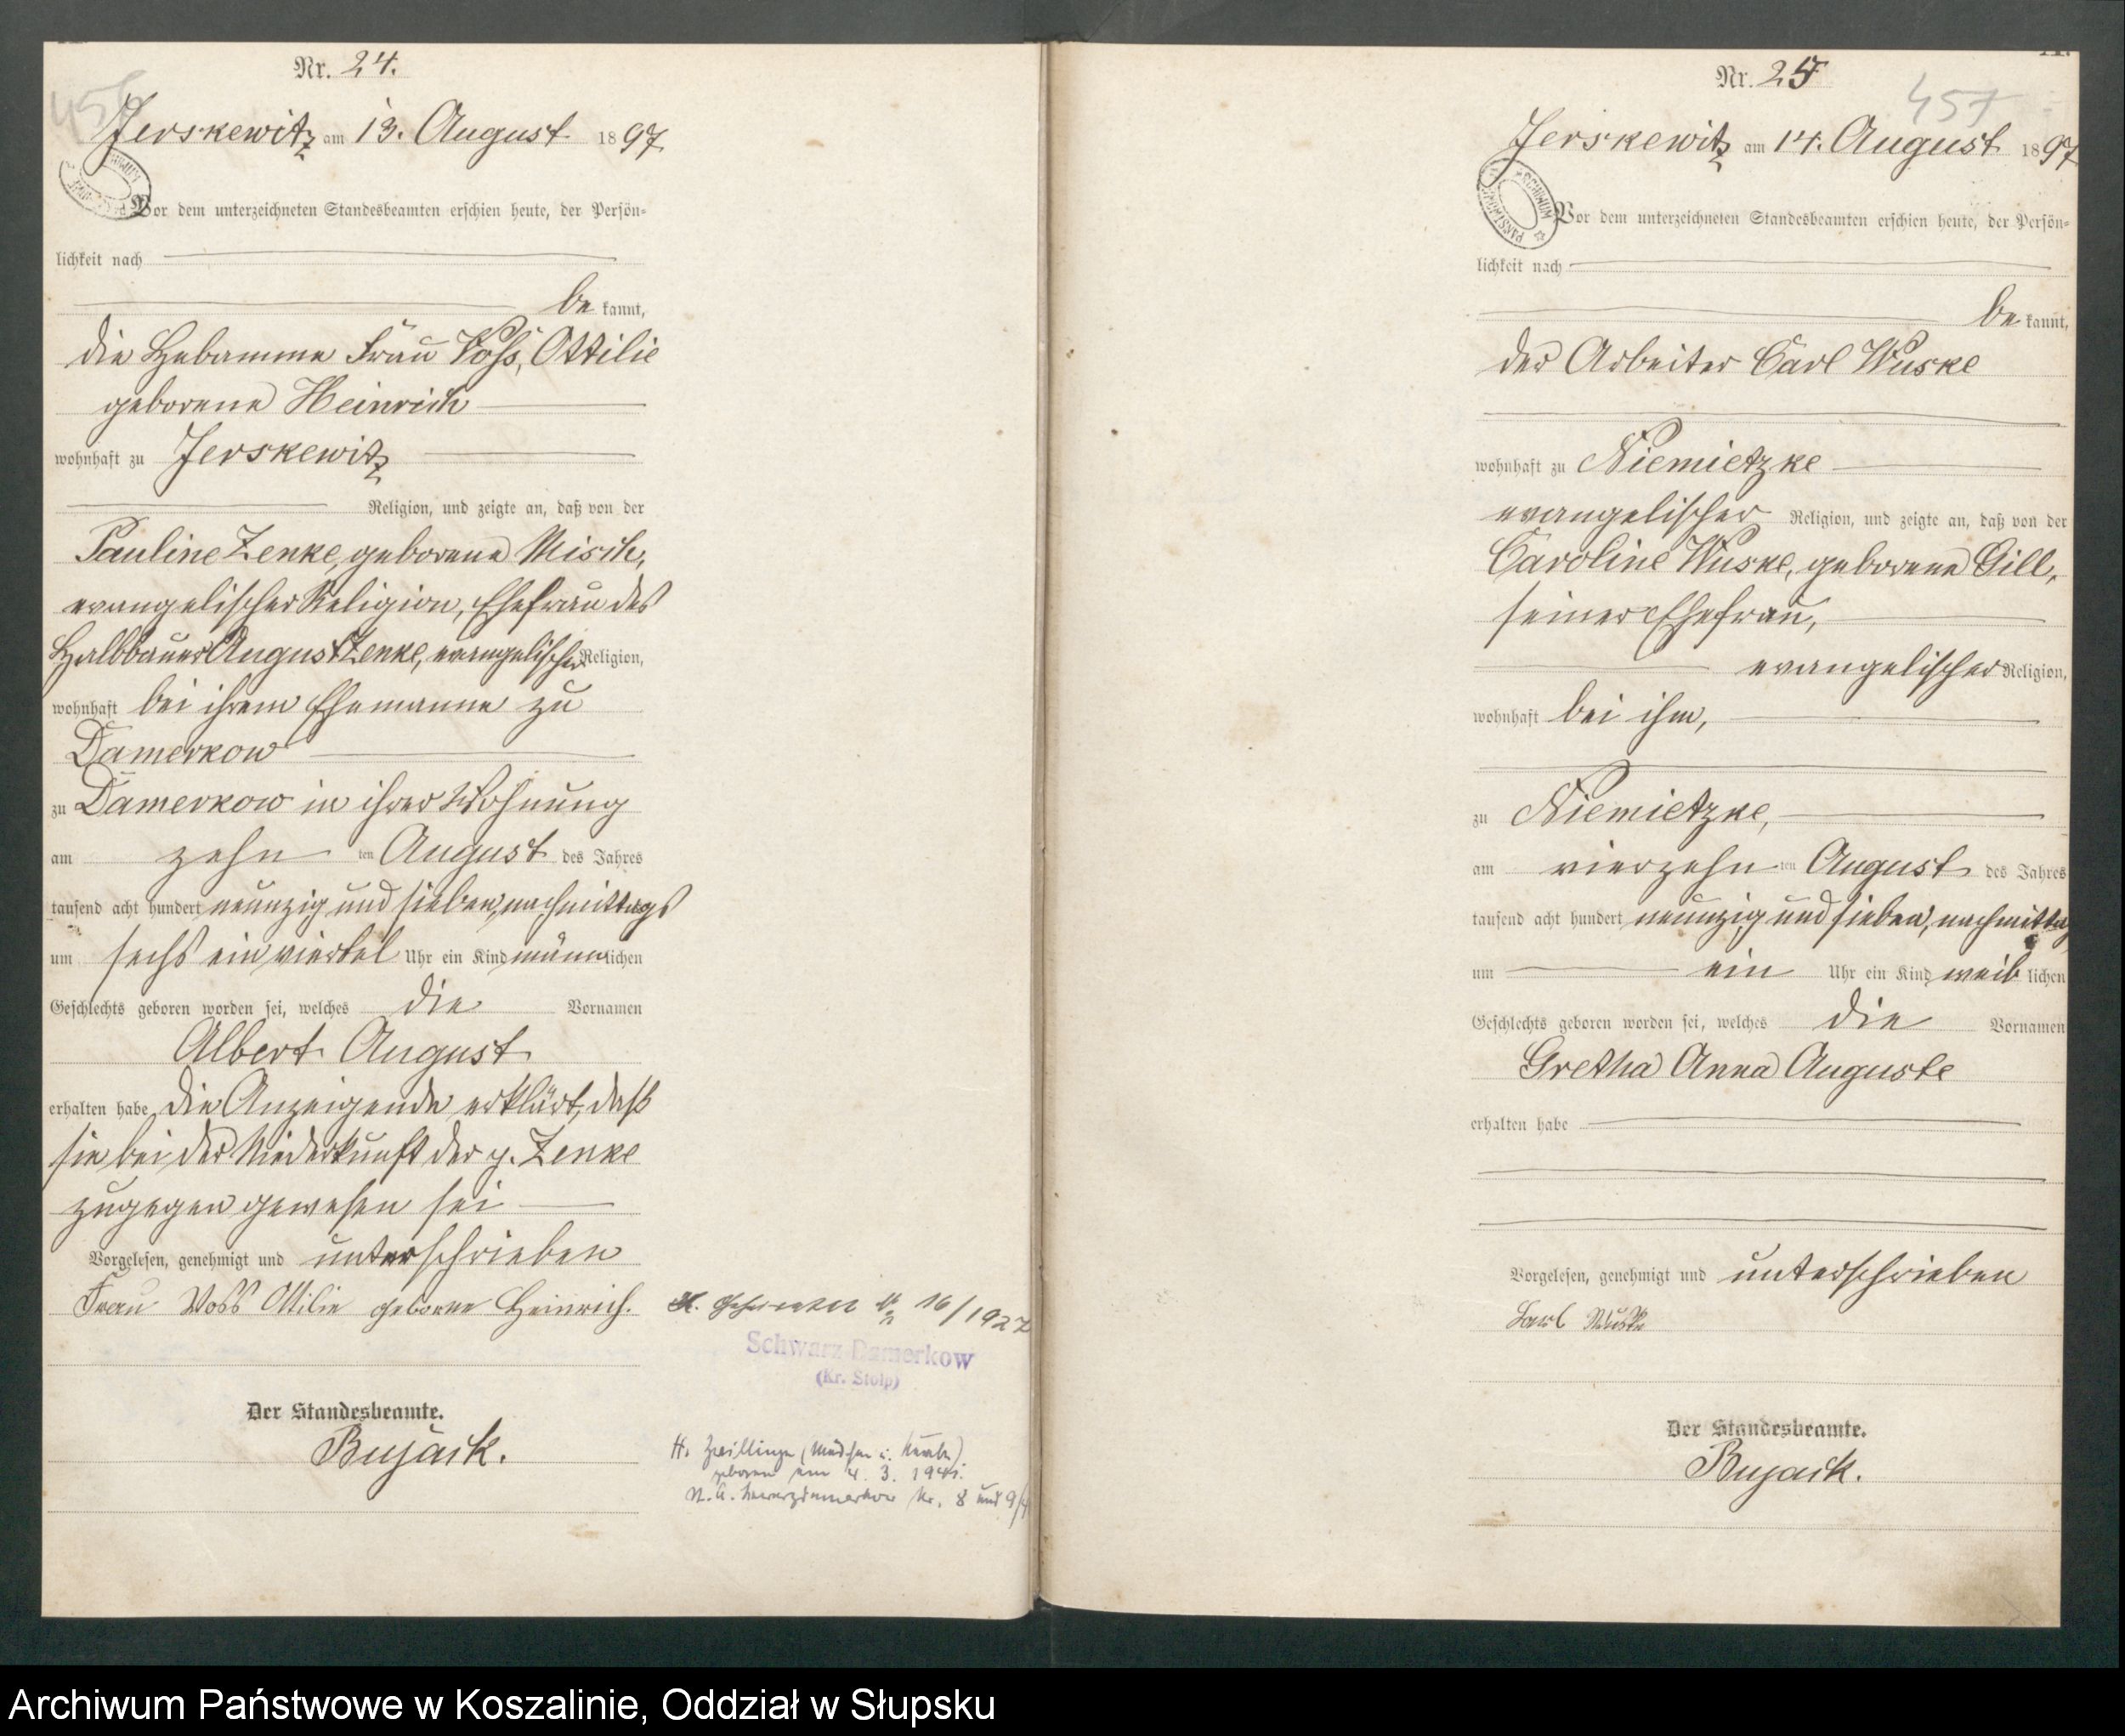 Nr. 24.
Jerskewitz am 13. August 1897
Vor dem unterzeichneten Standesbeamten erschien heute, der Persön=
lichkeit nach
be kannt,
die Hebamme Frau Voß, Ottilie
geborene Heinrich
wohnhaft zu Jerskewitz
Religion, und zeigte an, daß von der
Pauline Zenke, geborene Misch,
evangelischer Religion, Ehefrau des
Halbbauer August Zenke, evangelischer Religion,
wohnhaft bei ihrem Ehemanne zu
Damerkow
zu Damerkow in ihrer Wohnung
am zehn ten August des Jahres
tausend acht hundert neunzig und sieben, nachmittags
um sechs ein viertel Uhr ein Kind männlichen
Geschlechts geboren worden sei, welches die Vornamen
Albert August
erhalten habe, die Anzeigende erklärt, daß
sie bei der Niederkunft der p. Zenke
zugegen gewesen sei
Vorgelesen, genehmigt und unterschrieben
Frau Voss Ottilie geborene Heinrich.
Der Standesbeamte.
Bujack.
16/1927
Schwarz Damerkow
(Kr. Stolp)
H. Zwillinge (Mädchen u. Knabe)
geboren am 4. 3. 1941.
Nr. 8 und 9
Nr. 25
457
Jerskewitz am 14. August 1897
ARCHIWUM PAŃSTWOWE
Vor dem unterzeichneten Standesbeamten erschien heute, der Persön=
lichkeit nach
be kannt,
der Arbeiter Carl Wuske
wohnhaft zu Niemietzke
evangelischer Religion, und zeigte an, daß von der
Caroline Wuske, geborene Gill,
seiner Ehefrau,
evangelischer Religion,
wohnhaft bei ihm,
zu Niemietzke,
am vierzehn ten August des Jahres
tausend acht hundert neunzig und sieben, nachmittag
um ein Uhr ein Kind weib lichen
Geschlechts geboren worden sei, welches die Vornamen
Gretha Anna Auguste
erhalten habe
Vorgelesen, genehmigt und unterschrieben
Carl Wuske
Der Standesbeamte.
Bujack.
Archiwum Państwowe w Koszalinie, Oddział w Słupsku